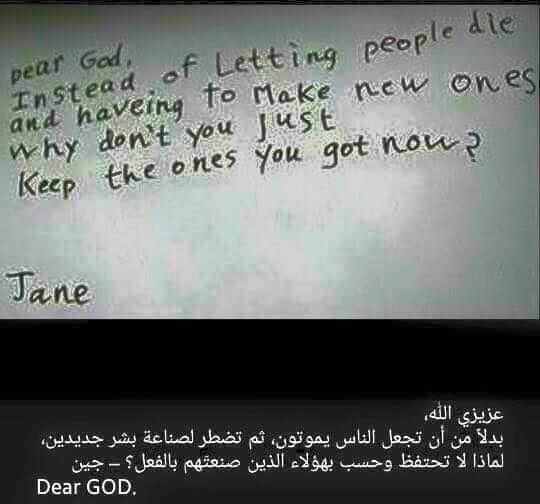 Dear God,
Instead of Letting people die
and haveing to Make new ones
why don't you Just
Keep the ones you got now?
Jane
عزيزي الله،
بدلاً من أن تجعل الناس يموتون، ثم تضطر لصناعة بشر جديدين،
لماذا لا تحتفظ وحسب بهؤلاء الذين صنعتَهم بالفعل؟ – جين
Dear GOD.